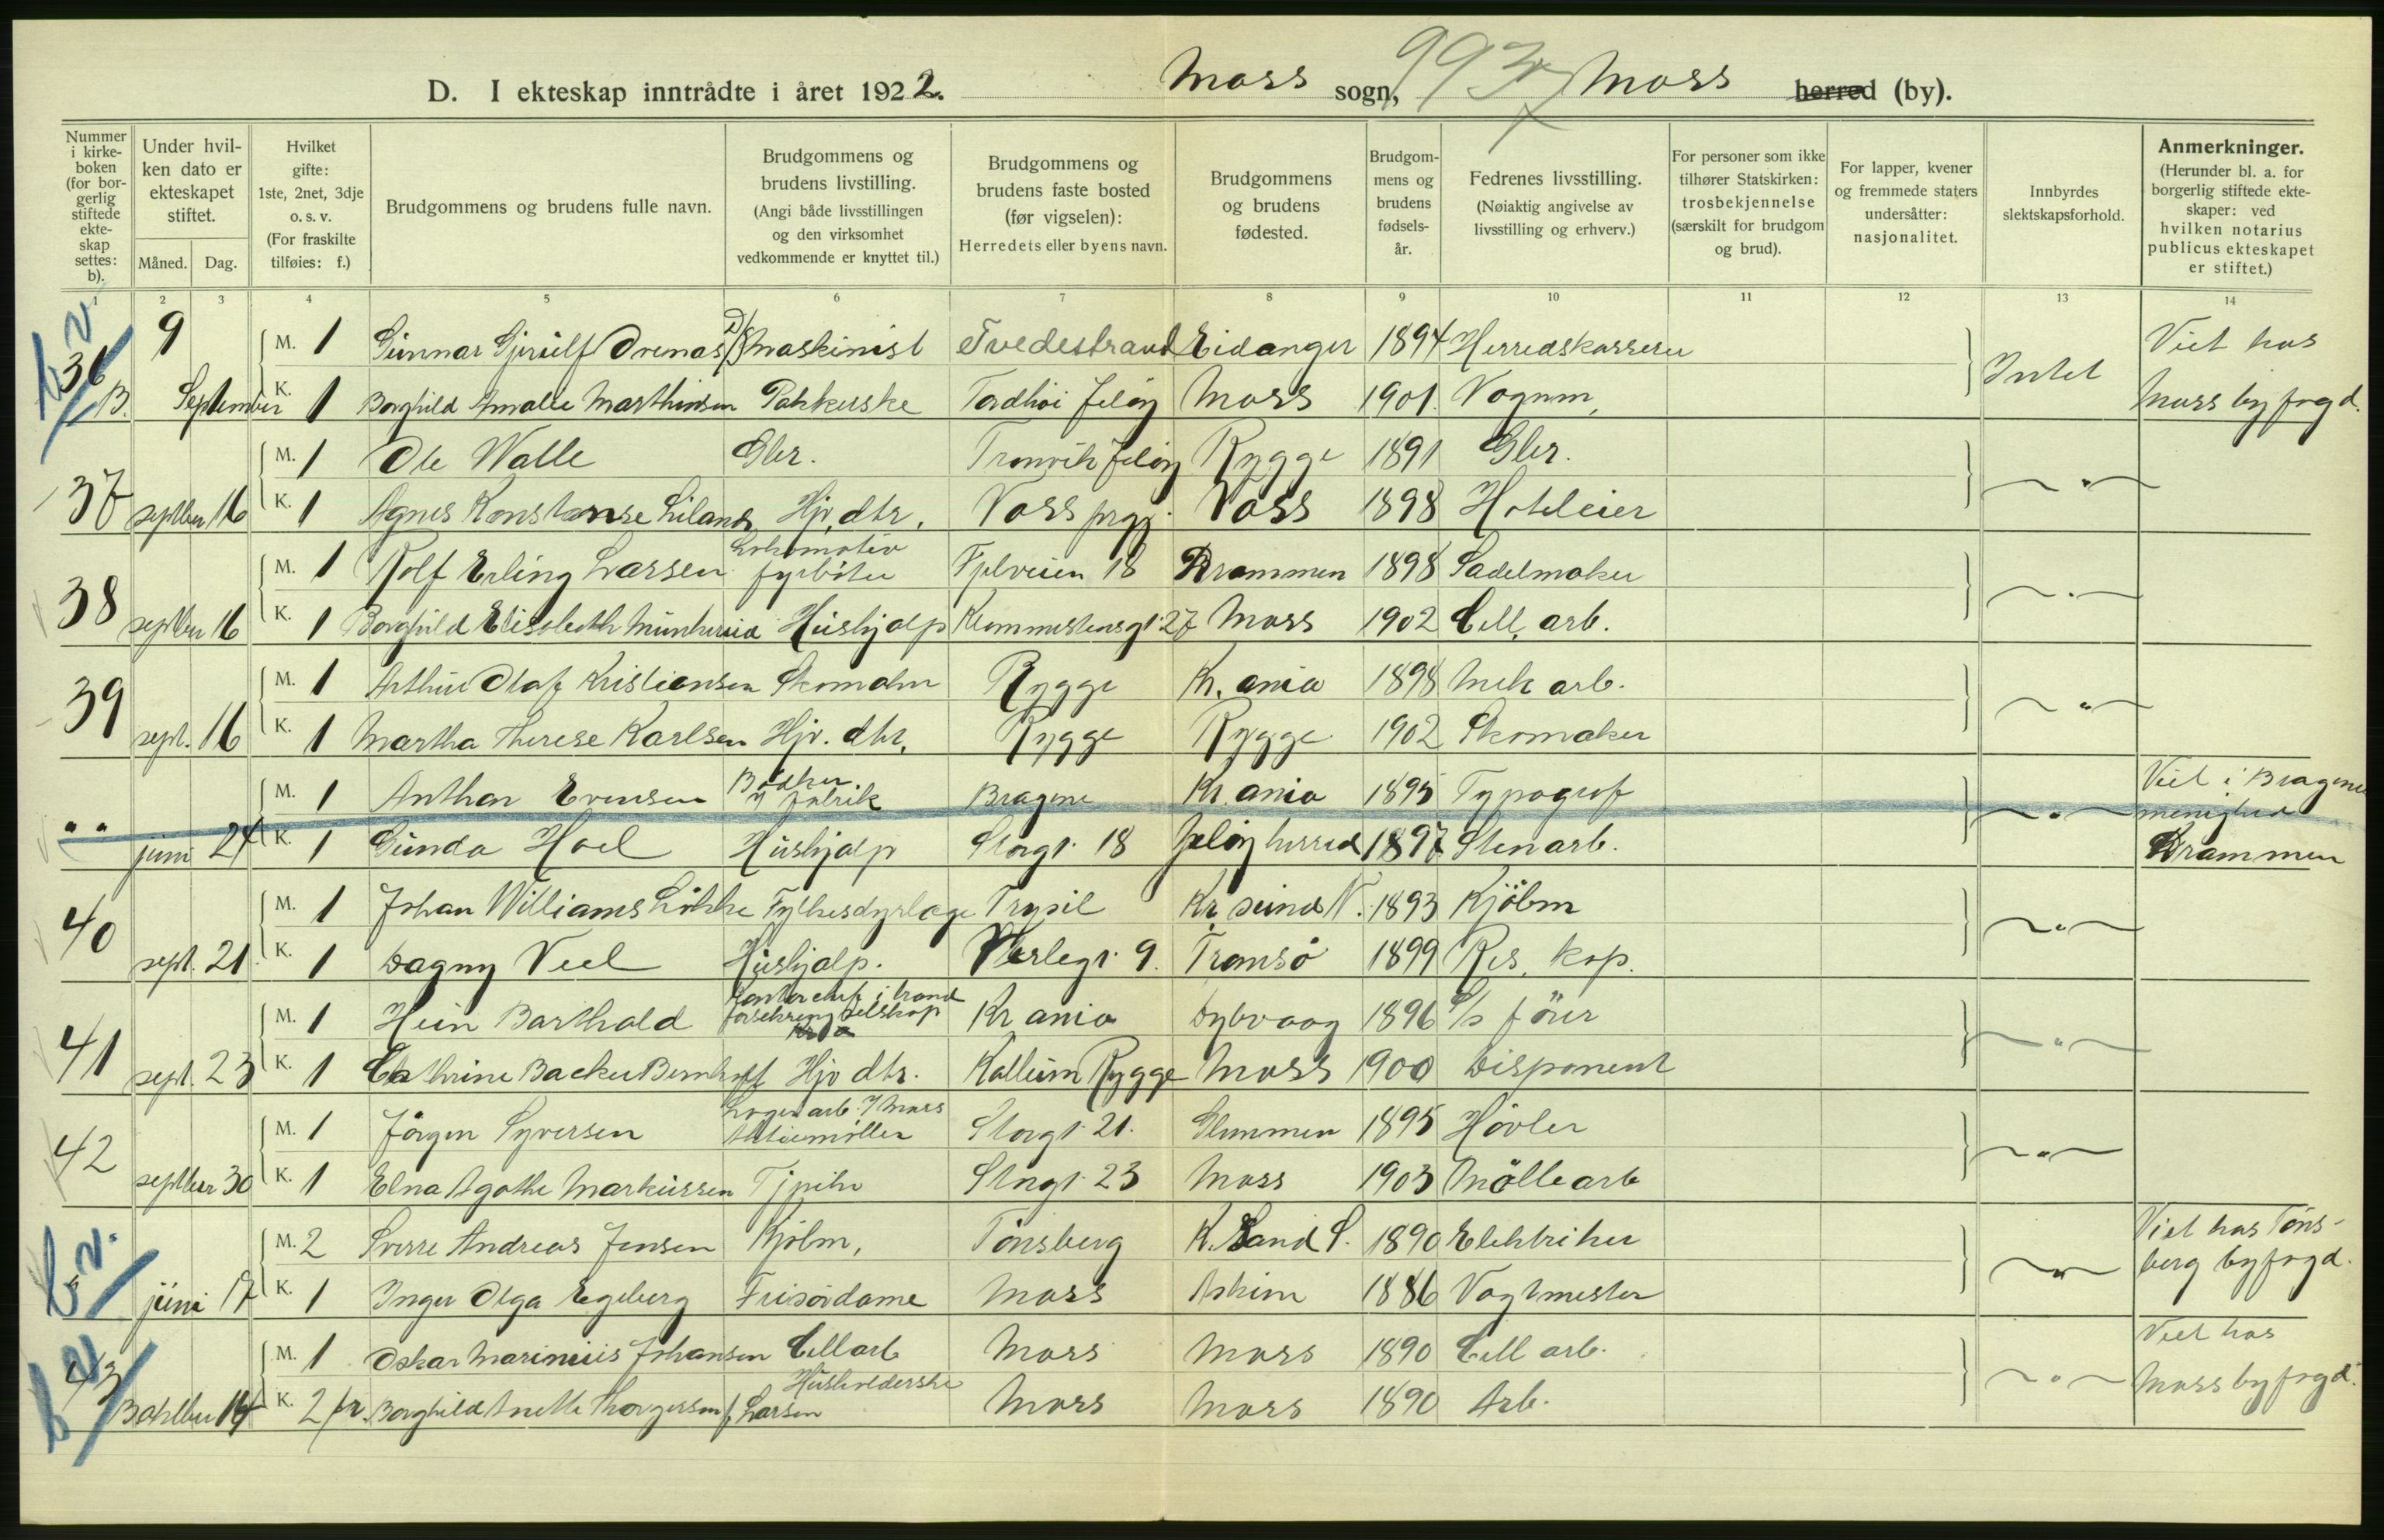 993
D. I ekteskap inntrådte i året 1922. Moss sogn, Moss herred (by).
Nummer i kirkeboken (for borgerlig stiftede ekteskap settes: b).
Under hvilken dato er ekteskapet stiftet.
Måned. Dag.
Hvilket gifte: 1ste, 2net, 3dje o. s. v. (For fraskilte tilføies: f.)
Brudgommens og brudens fulle navn.
Brudgommens og brudens livstilling. (Angi både livsstillingen og den virksomhet vedkommende er knyttet til.)
Brudgommens og brudens faste bosted (før vigselen): Herredets eller byens navn.
Brudgommens og brudens fødested.
Brudgommens og brudens fødselsår.
Fedrenes livsstilling. (Nøiaktig angivelse av livsstilling og erhverv.)
For personer som ikke tilhører Statskirken: trosbekjennelse (særskilt for brudgom og brud).
For lapper, kvener og fremmede staters undersåtter: nasjonalitet.
Innbyrdes slektskapsforhold.
Anmerkninger. (Herunder bl. a. for borgerlig stiftede ekteskaper: ved hvilken notarius publicus ekteskapet er stiftet.)
1 2 3 4 5 6 7 8 9 10 11 12 13 14
b.v. 36 9 M. 1 Gunnar Gjerulf Ovenas D/S maskinist Tvedestrand Eidanger 1894 Herredskasserer Intet Viet hos
B. September K. 1 Borghild Amalie Marthinsen Pakkerske Tordhøi Jeløy Moss 1901 Vognm, Moss byfogd.
37 M. 1 Ole Walle Gbr. Tronvik Jeløy Rygge 1891 Gbr. — " —
septbr 16 K. 1 Agnes Konstanse Liland Hjv. dtr. Voss prgj. Voss 1898 Hoteleier
38 M. 1 Rolf Erling Larsen Lokomotiv fyrbøter Fjelveien 18 Drammen 1898 Sadelmaker — " —
septbr 16 K. 1 Borghild Elisabeth Hushjælp 27 Moss 1902 Cell. arb.
39 M. 1 Arthur Olaf Kristiansen Skomaker Rygge Kr. ania 1898 Mek arb. — " —
sept. 16 K. 1 Martha Therese Karlsen Hjv. dtr. Rygge Rygge 1902 Skomaker
" " M. 1 Anthon Evensen Bødker v fabrik Bragene Kr. ania 1895 Typograf — " — Viet i Bragenes menighed
juni 24 K. 1 Gunda Hoel Hushjælp Storgt. 18 Jeløy herred 1897 Stenarb. Drammen
40 M. 1 Johan Williams Løkke Fylkesdyrlæge Trysil Kr. sund N. 1893 Kjøbm — " —
sept. 21. K. 1 Dagny Veel Hushjælp. Værlegt. 9. Tromsø 1899 Res. kap.
41 M. 1 Hein Barthold Kontorchef i brand forsekrengselskap Kr ania Dybvaag 1896 S/s fører — " —
sept. 23 K. 1 Cathrine Backer Bernhoft Hjv dtr. Kallum Rygge Moss 1900 Disponent
42 M. 1 Jørgen Syversen Lagerarb. v Moss Aktiemøller Storgt. 21. Glemmen 1895 Høvler — " —
septber 30 K. 1 Elna Agathe Markussen Tjpike Storgt. 23 Moss 1903 Møllearb
b.v. M. 2 Sverre Andreas Jensen Kjøbm, Tønsberg K. Sand S. 1890 Elektriker — " — Viet hos Tøns-
juni 17 K. 1 Inger Olga Egeberg Frisørdame Moss Askim 1886 Vagtmester berg byfogd.
b.v. 43 M. 1 Oskar Marinius Johansen Cell arb Moss Moss 1890 Cell arb. — " — Viet hos
B oktbr 14 K. 2 fr. Borghild Anette Thorgersen f. Larsen Husholderske Moss Moss 1890 Arb. Moss byfogd.